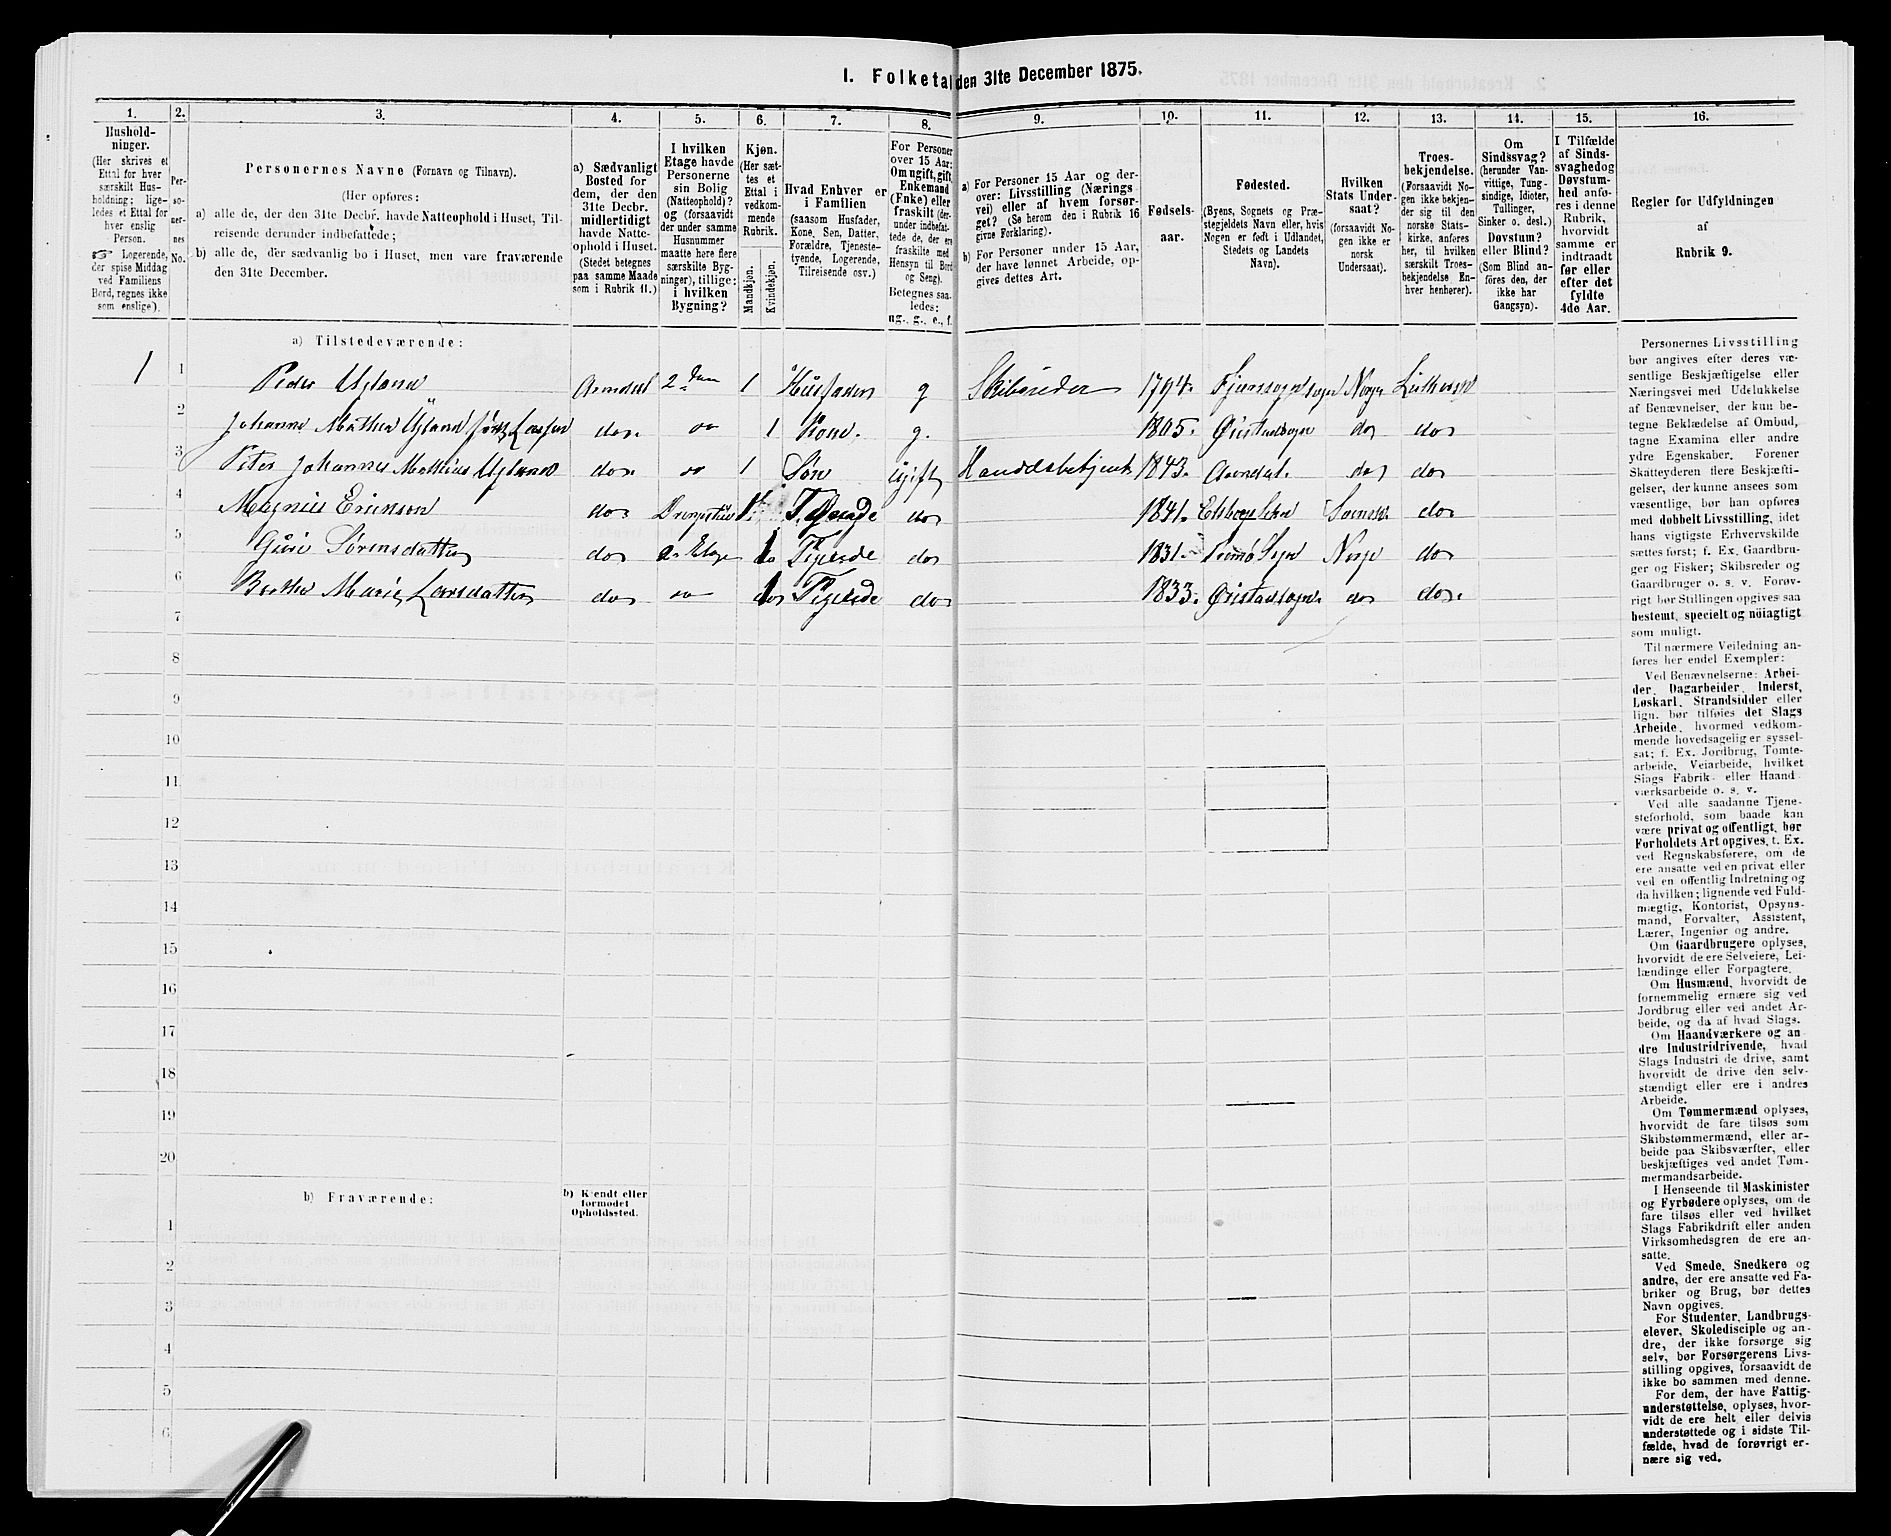 I. Folketal den 31te December 1875.
1. 2. 3. 4. 5. 6. 7. 8. 9. 10. 11. 12. 13. 14. 15. 16.
Hushold-
ninger.
(Her skrives et
Ettal for hver
særskilt Hus-
holdning; lige-
ledes et Ettal for
hver enslig
Person.
☞ Logerende,
der spise Middag
ved Familiens
Bord, regnes ikke
som enslige).
Per-
so-
ner-
nes
No.
Personernes Navne (Fornavn og Tilnavn).
(Her opføres:
a) alle de, der den 31te Decbr. havde Natteophold i Huset, Til-
reisende derunder indbefattede;
b) alle de, der sædvanlig bo i Huset, men vare fraværende
den 31te December.
a) Sædvanligt
Bosted for
dem, der den
31te Decbr.
midlertidigt
havde Natte-
ophold i Huset.
(Stedet betegnes
paa samme Maade
som i Rubrik 11.)
I hvilken
Etage havde
Personerne
sin Bolig
(Natteophold)?
og (forsaavidt
der under samme
Husnummer
maatte høre flere
særskilte Byg-
ninger), tillige:
i hvilken
Bygning?
Kjøn.
(Her sæt-
tes et
Ettal i
vedkom-
mende
Rubrik.
Mandkjøn.
Kvindekjøn.
Hvad Enhver er
i Familien
(saasom Husfader,
Kone, Søn, Datter,
Forældre, Tjeneste-
tyende, Logerende,
Tilreisende osv.)
For Personer
over 15 Aar:
Om ugift, gift,
Enkemand
(Enke) eller
fraskilt (der-
under indbefat-
tede de, der ere
fraskilte med
Hensyn til Bord
og Seng).
Betegnes saa-
ledes:
ug., g., e., f.
a) For Personer 15 Aar og der-
over: Livsstilling (Nærings-
vei) eller af hvem forsør-
get? (Se herom den i Rubrik 16
givne Forklaring).
b) For Personer under 15 Aar,
der have lønnet Arbeide, op-
gives dettes Art.
Fødsels-
aar.
Fødested.
(Byens, Sognets og Præ-
stegjeldets Navn eller, hvis
Nogen er født i Udlandet,
Stedets og Landets
Navn).
Hvilken
Stats Under-
saat?
(forsaavidt No-
gen ikke er
norsk
Undersaat).
Troes-
bekjendelse.
(Forsaavidt No-
gen ikke bekjen-
der sig til den
norske Stats-
kirke, anføres
her, til hvilken
særskilt Troes-
bekjendelse En-
hver henhører).
Om
Sindssvag?
(herunder Van-
vittige, Tung-
sindige, Idioter,
Tullinger,
Sinker o. desl.)
Døvstum?
eller Blind?
(Som Blind an-
føres den, der
ikke har
Gangsyn).
I Tilfælde
af Sinds-
svaghed og
Døvstum-
hed anfø-
res i denne
Rubrik,
hvorvidt
samme er
indtraadt
før eller
efter det
fyldte
4de Aar.
Regler for Udfyldningen
af
Rubrik 9.
a) Tilstedeværende:
1 1 Peder Ugland Arendal 2den 1 Husfader g Skibsreder 1794. Norge Luthersk
2 Johanne Mathea Ugland født Lassen do. do 1 Kone. g. 1805. Øiestadsogn do do
3 Peter Johannes Mathias Ugland do. do 1 Søn Ugift Handelsbetjent 1843. Arendal. do do
4 Magnus Erickson do. 1 do 1841. Svensk do
5 Guri Sørensdatter do 2. Etage 1 do 1831. Tromø Sogn Norge do
6 Berthe Marie Larsdatter do do 1 do 1833. Øiestadsogn. do do.
7
8
9
10
11
12
13
14
15
16
17
18
19
20
b) Fraværende:
b) Kjendt eller
formodet
Opholdssted.
1
2
3
4
5
6
Personernes Livsstilling
bør angives efter deres væ-
sentlige Beskjæftigelse eller
Næringsvei med Udelukkelse
af Benævnelser, der kun be-
tegne Beklædelse af Ombud,
tagne Examina eller andre
ydre Egenskaber. Forener
Skatteyderen flere Beskjæfti-
gelser, der kunne ansees som
væsentlige, bør han opføres
med dobbelt Livsstilling, idet
hans vigtigste Erhvervskilde
sættes først; f. Ex. Gaardbru-
ger og Fisker; Skibsreder og
Gaardbruger o. s. v. Forøv-
rigt bør Stillingen opgives saa
bestemt, specielt og nöiagtigt
som muligt.
Til nærmere Veiledning an-
føres her endel Exempler:
Ved Benævnelserne: Arbei-
der, Dagarbeider, Inderst,
Løskarl, Strandsidder eller
lign. bør tilføies det Slags
Arbeide, hvormed vedkom-
mende hovedsagelig er syssel-
sat; f. Ex. Jordbrug, Tomte-
arbeide, Veiarbeide, hvilket
Slags Fabrik- eller Haand-
værksarbeide o. s. v.
Ved alle saadanne Tjene-
steforhold, som baade kan
være privat og offentligt, bør
Forholdets Art opgives, t. Ex.
ved Regnskabsførere, om de
ere ansatte ved en privat eller
ved en offentlig Indretning og
da hvilken; lignende ved Fuld-
mægtig, Kontorist, Opsyns-
mand, Forvalter, Assistent,
Lærer, Ingeniør og andre.
Om Gaardbrugere oplyses,
hvorvidt de ere Selveiere, Lei-
lændinge eller Forpagtere.
Om Husmænd, hvorvidt de
fornemmelig ernære sig ved
Jordbrug eller ved andet Ar-
beide, og da af hvad Slags.
Om Haandværkere og an-
dre Industridrivende, hvad
Slags Industri de drive, samt
hvorvidt de drive den selv-
stændigt eller ere i andres
Arbeide.
Om Tømmermænd oplyses,
hvorvidt de fare tilsøs som
Skibstømmermænd, eller ar-
beide paa Skibsværfter, eller
beskjæftiges ved andet Tøm-
mermandsarbeide.
I Henseende til Maskinister
og Fyrbødere oplyses, om de
fare tilsøs eller ved hvilket
Slags Fabrikdrift eller anden
Virksomhedsgren de ere an-
satte.
Ved Smede, Snedkere og
andre, der ere ansatte ved Fa-
briker og Brug, bør dettes
Navn opgives.
For Studenter, Landbrugs-
elever, Skoledisciple og an-
dre, der ikke forsørge sig
selv, bør Forsørgerens Livs-
stilling opgives, forsaavidt de
ikke bo sammen med denne.
For dem, der have Fattig-
understøttelse, oplyses, hvor-
vidt de ere helt eller delvis
understøttede og i sidste Til-
fælde, hvad de forøvrigt er-
nære sig ved.